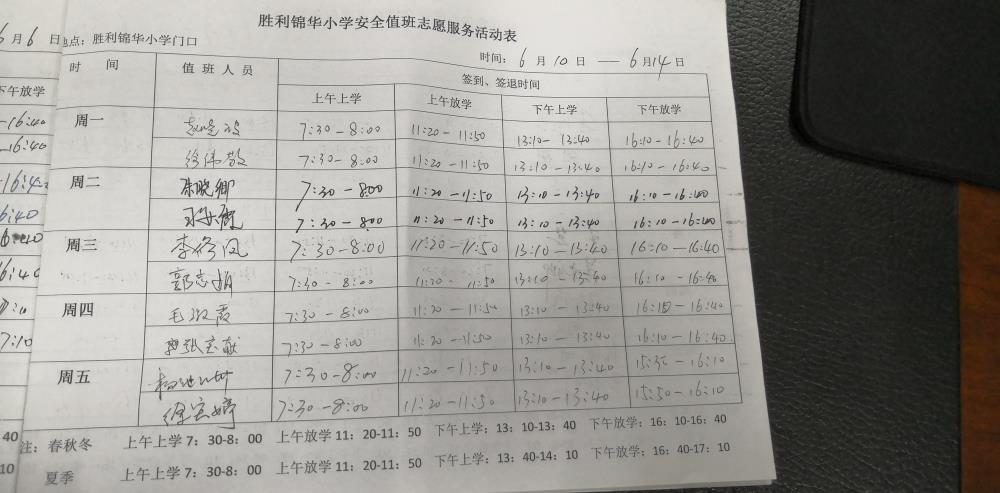 胜利锦华小学安全值班志愿服务活动表
地点：胜利锦华小学门口
时间：6月10日——6月14日
时 间 值班人员 签到、签退时间
上午上学 上午放学 下午上学 下午放学
周一 7:30-8:00 11:20-11:50 13:10-13:40 16:10-16:40
7:30-8:00 11:20-11:50 13:10-13:40 16:10-16:40
周二 朱晓卿 7:30-8:00 11:20-11:50 13:10-13:40 16:10-16:40
7:30-8:00 11:20-11:50 13:10-13:40 16:10-16:40
周三 李 凤 7:30-8:00 11:20-11:50 13:10-13:40 16:10-16:40
郭志 7:30-8:00 11:20-11:50 13:10-13:40 16:10-16:40
周四 毛 霞 7:30-8:00 11:20-11:50 13:10-13:40 16:10-16:40
张宝献 7:30-8:00 11:20-11:50 13:10-13:40 16:10-16:40
周五 7:30-8:00 11:20-11:50 13:10-13:40 16:10
徐宝婷 7:30-8:00 11:20-11:50 13:10-13:40 15:50-16:10
注：春秋冬 上午上学 7：30-8：00 上午放学 11：20-11：50 下午上学：13：10-13：40 下午放学：16：10-16：40
夏季 上午上学 7：30-8：00 上午放学 11：20-11：50 下午上学：13：40-14：10 下午放学：16：40-17：10
月6日
下午放学
-16:40
-16:40
16:40
7:10
40
10